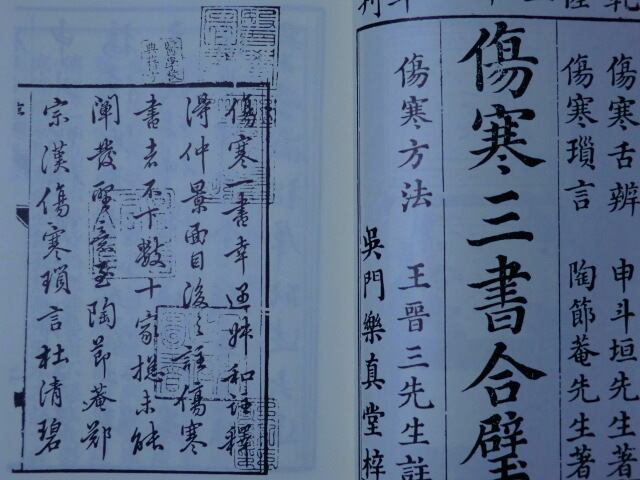 傷寒舌辨 申斗垣先生著
傷寒瑣言 陶節菴先生著
傷寒三書合璧
傷寒方法 王晉三先生註
吳門樂真堂梓
傷寒一書幸遇叔和註釋
得仲景面目後之註傷寒
書者不下數十家摠未能
闡發聖意盖陶節菴鄭
宗漢傷寒瑣言杜清碧